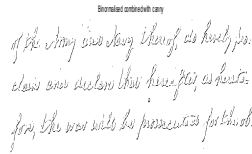 Binormalised combined with canny
of the Army and Navy thereof, do hereby pro-
claim and declare that hereafter, as hereto-
fore, the war will be prosecuted for the ob